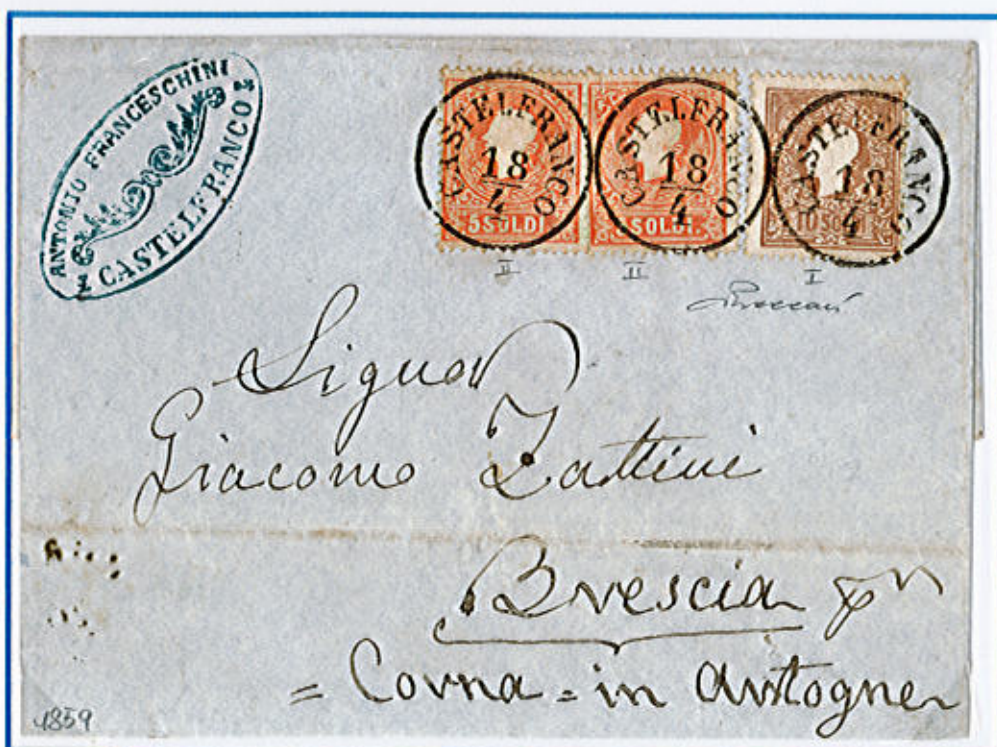 ANTONIO FRANCESCHINI
CASTELFRANCO
CASTELFRANCO
18
4
5 SOLDI
CASTELFRANCO
18
4
SOLDI
CASTELFRANCO
18
4
10 SOLDI
II
II
I
Signor
Giacomo Zattini
Brescia pr
= Corna = in Artogne
1859